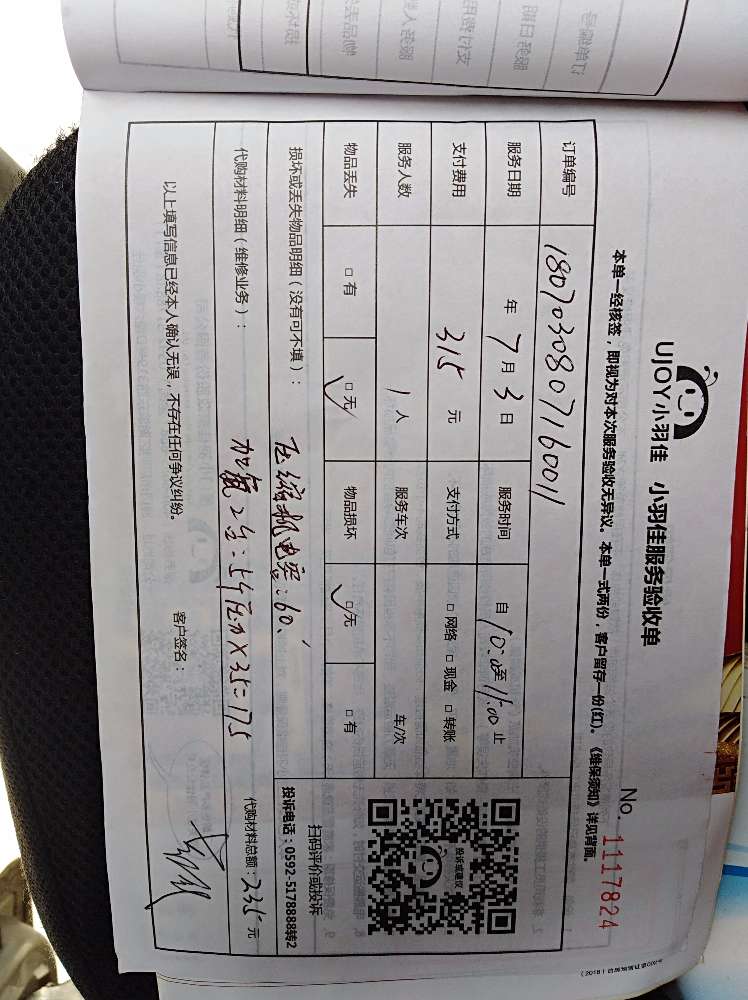 UJOY小羽佳 小羽佳服务验收单
No. 1117824
本单一经核签，即视为对本次服务验收无异议。本单一式两份，客户留存一份(红)。《维保须知》详见背面。
订单编号 180703080716001
服务日期 年 7月 3日 服务时间 自 10:00至 11:00 止
支付费用 315 元 支付方式 □ 网络 □ 现金 □ 转账
服务人数 1 人 服务车次 车/次
物品丢失 □ 有 □ 无 物品损坏 □ 无 □ 有
扫码评价或投诉
投诉电话：0592-5178888转2
投诉或建议
损坏或丢失物品明细（没有可不填）：
压缩机电容：60.
代购材料明细（维修业务）：
加氟2台：5个压力×35=175
代购材料总额：235 元
以上填写信息已经本人确认无误，不存在任何争议纠纷。
客户签名：